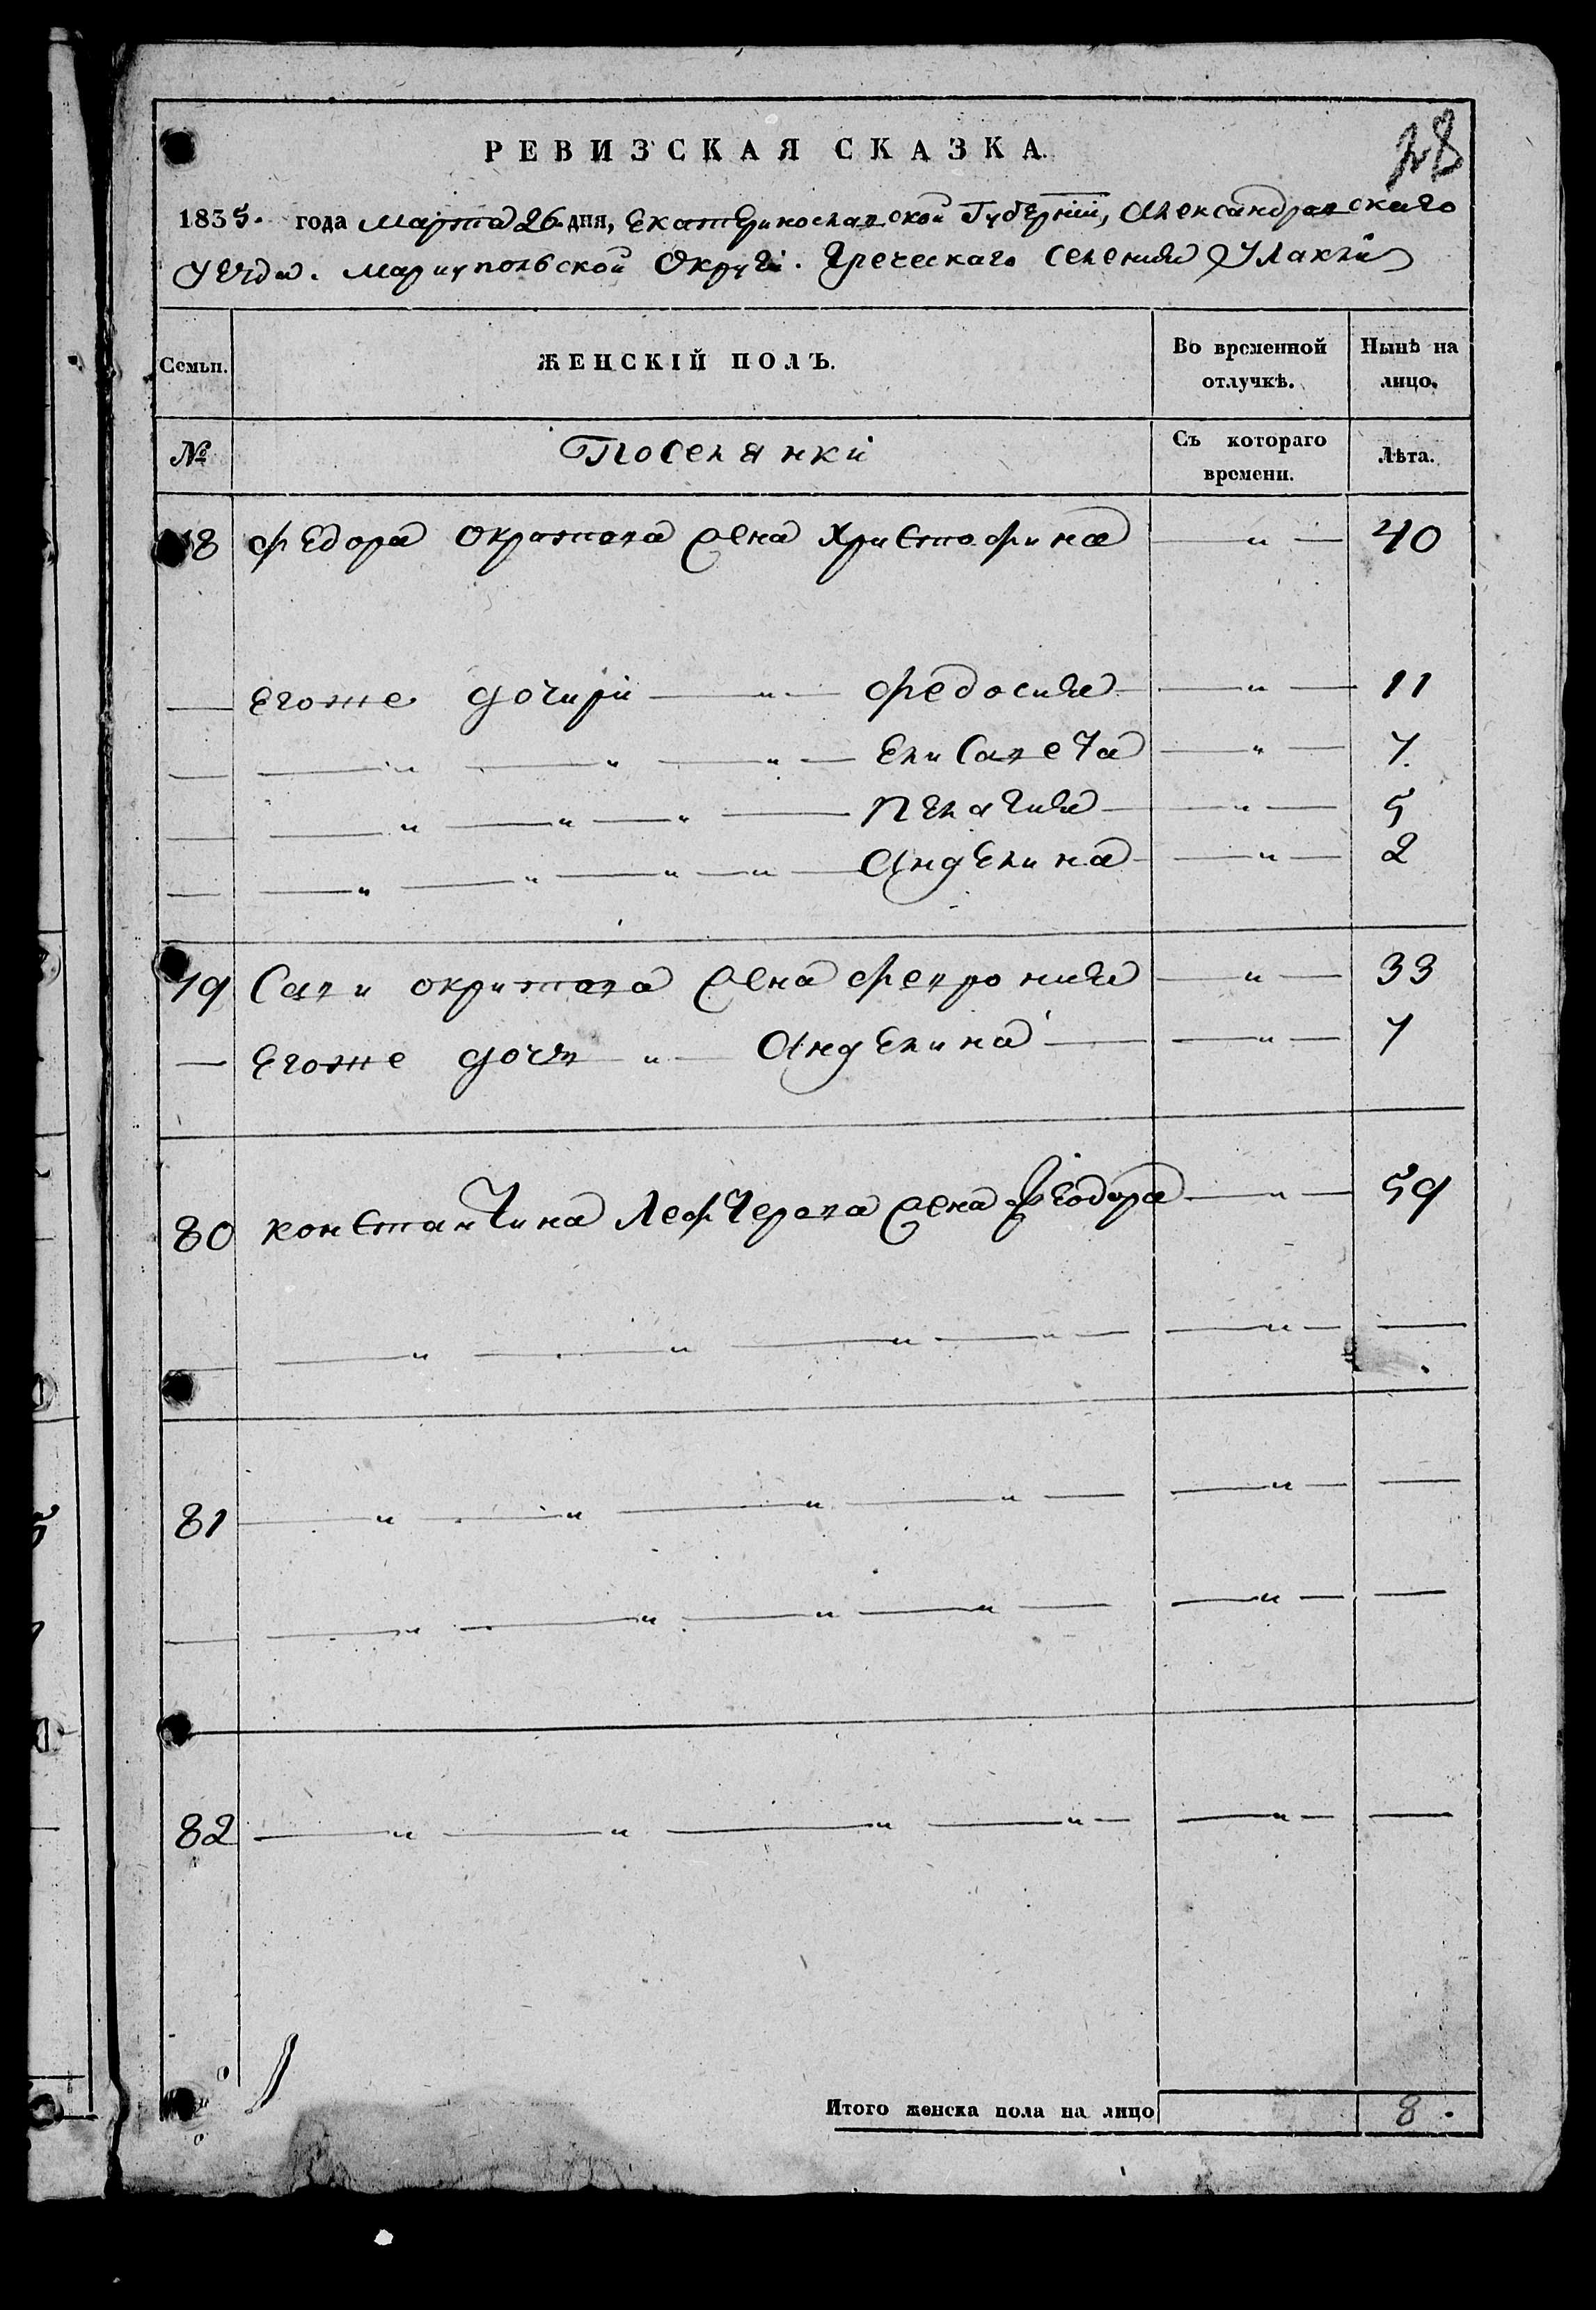 28
РЕВИЗСКАЯ СКАЗКА.
1835. года Марта 26 дня, Екатеринославской Губернiи, Александровскаго
Уезда. Мариупольской Округи. Греческаго Селения Улаклы
Семьи. ЖЕНСКІЙ ПОЛЪ. Во временной отлучкѣ. Нынѣ на лицо.
№ Поселянки Съ котораго времени. Лѣта.
78 Федора Окритова жена Христофина — „ — 40
— Егоже дочири — „ — Федосия — „ — 11
— — „ — „ — „ — Елисавета — „ — 7
— — „ — „ — „ — Пелагия — „ — 5
— — „ — „ — „ — „ — Анделина — „ — 2
79 Сави Окритова жена Феврония — „ — 33
— Егоже дочь — „ — Анделина — „ — 7
80 Константина Лефтерова жена Феодора — „ — 59
— — „ — „ — „ — „ — — „ — —
81 — „ — „ — „ — „ — — „ — —
— — „ — „ — „ — „ — — „ — —
82 — „ — „ — „ — „ — — „ — —
Итого женска пола на лицо 8.